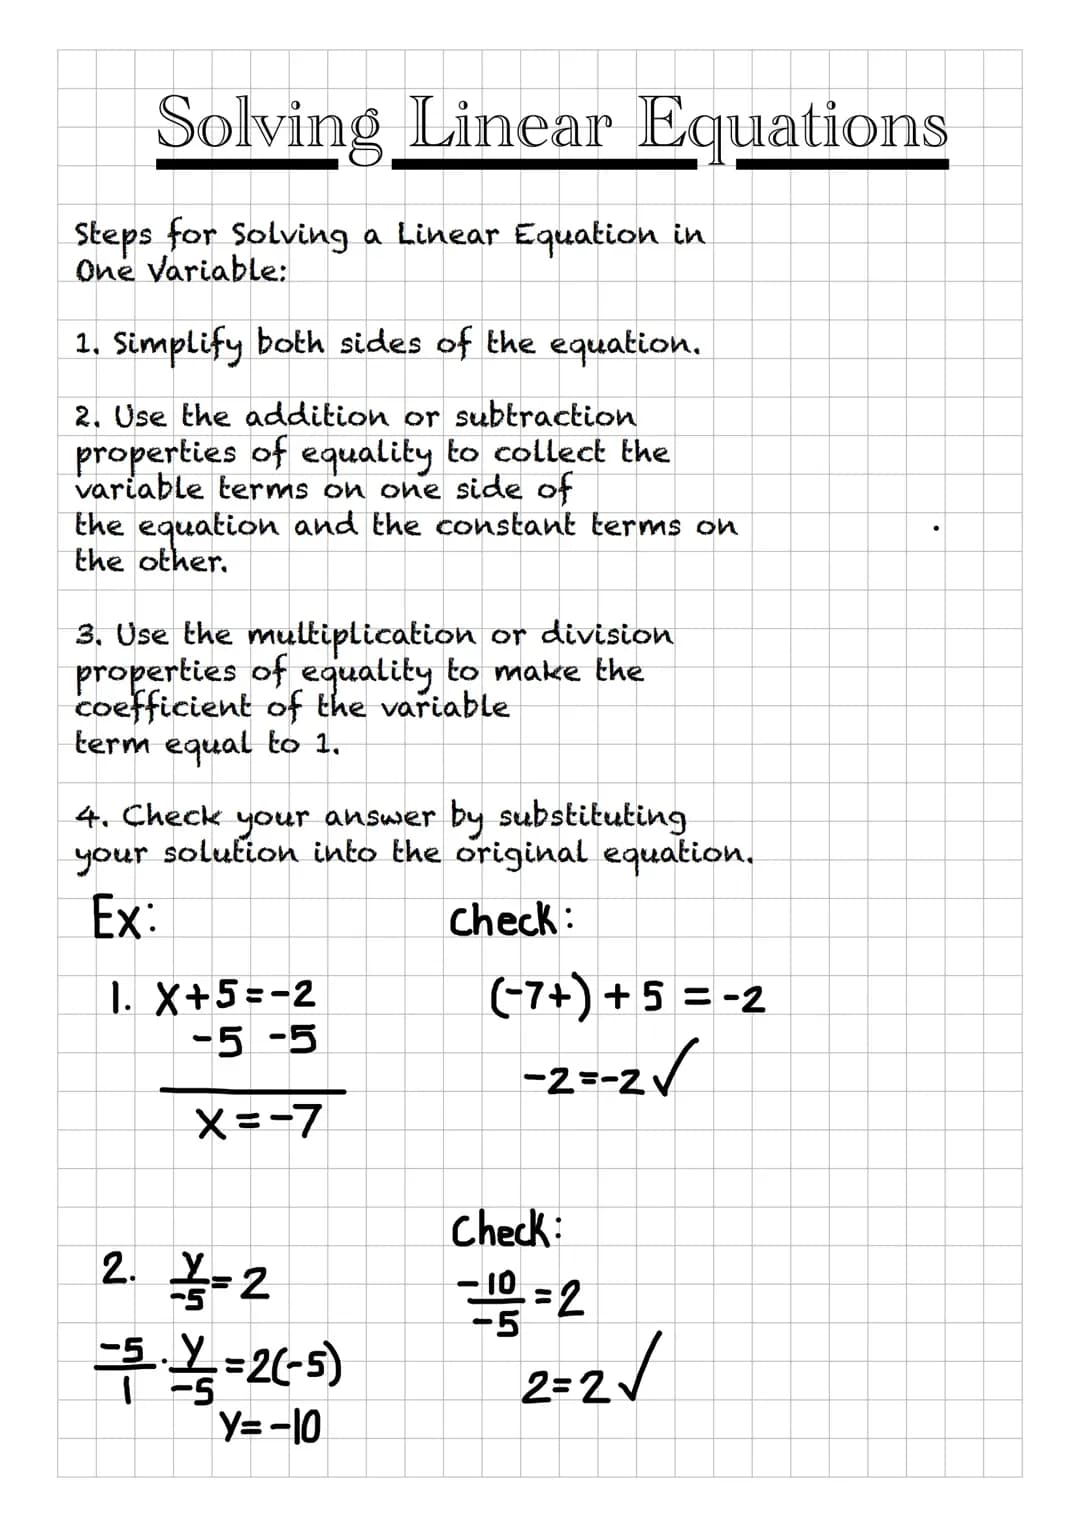 Solving Linear Equations
Steps for Solving a Linear Equation in
One Variable:
1. Simplify both sides of the equation.
2. Use the addition or subtraction
properties of equality to collect the
variable terms on one side of
the equation and the constant terms on
the other.
3. Use the multiplication or division
properties of equality to make the
coefficient of the variable
term equal to 1.
4. Check your answer by substituting
your solution into the original equation.
Ex:
1. x+5=-2
-5 -5
x=-7
Check:
(-7+)+5 = -2
-2=-2✓
2. y/-5=2
-5/1·y/-5=2(-5)
y=-10
Check:
-10/-5=2
2=2✓